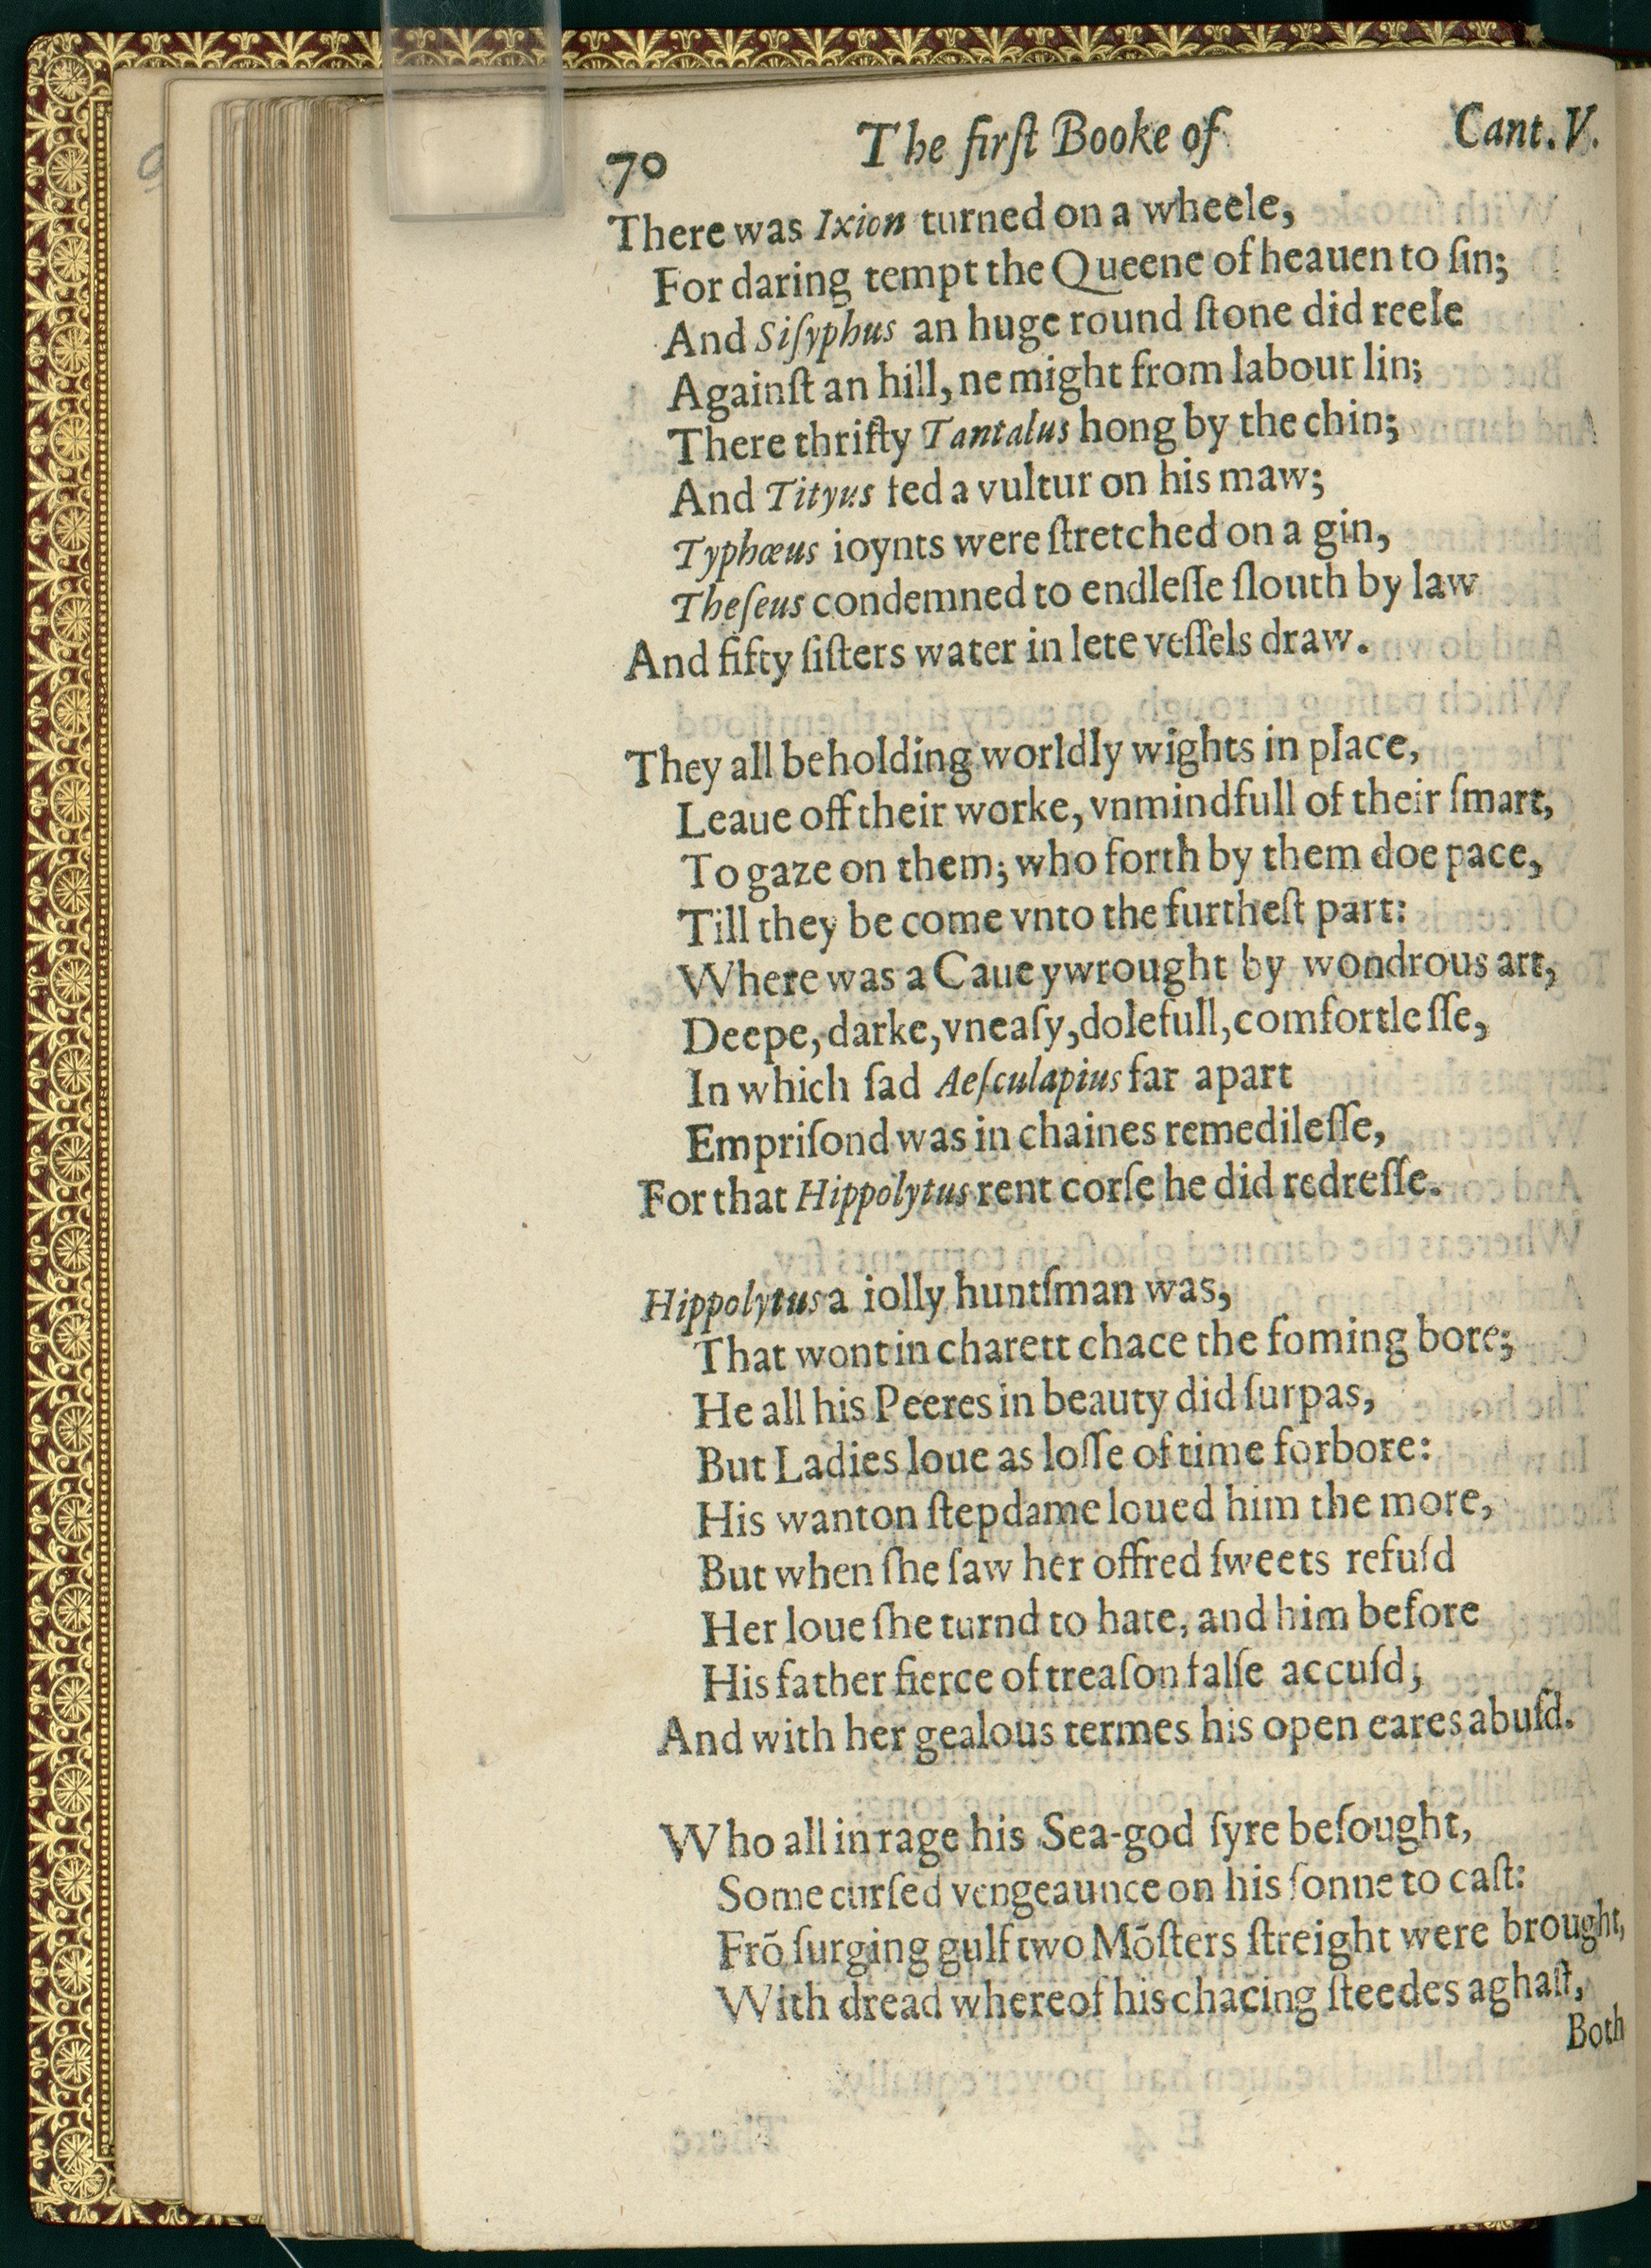 70 The firſt Booke of Cant. V.
There was Ixion turned on a wheele,
For daring tempt the Queene of heauen to ſin;
And Siſyphus an huge round ſtone did reele
Againſt an hill, ne might from labour lin;
There thrifty Tantalus hong by the chin;
And Tityus fed a vultur on his maw;
Typhœus ioynts were ſtretched on a gin,
Theſeus condemned to endleſſe ſlouth by law
And fifty ſiſters water in lete veſſels draw.
They all beholding worldly wights in place,
Leaue off their worke, vnmindfull of their ſmart,
To gaze on them; who forth by them doe pace,
Till they be come vnto the furtheſt part:
Where was a Caue ywrought by wondrous art,
Deepe, darke, vneaſy, dolefull, comfortleſſe,
In which ſad Aeſculapius far apart
Empriſond was in chaines remedileſſe,
For that Hippolytus rent corſe he did redreſſe.
Hippolytus a iolly huntſman was,
That wont in charett chace the foming bore;
He all his Peeres in beauty did ſurpas,
But Ladies loue as loſſe of time forbore:
His wanton ſtepdame loued him the more,
But when ſhe ſaw her offred ſweets refuſd
Her loue ſhe turnd to hate, and him before
His father fierce of treaſon falſe accuſd,
And with her gealous termes his open eares abuſd.
Who all in rage his Sea-god ſyre beſought,
Some curſed vengeaunce on his ſonne to caſt:
Frõ ſurging gulf two Mõſters ſtreight were brought,
With dread whereof his chacing ſteedes aghaſt,
Both